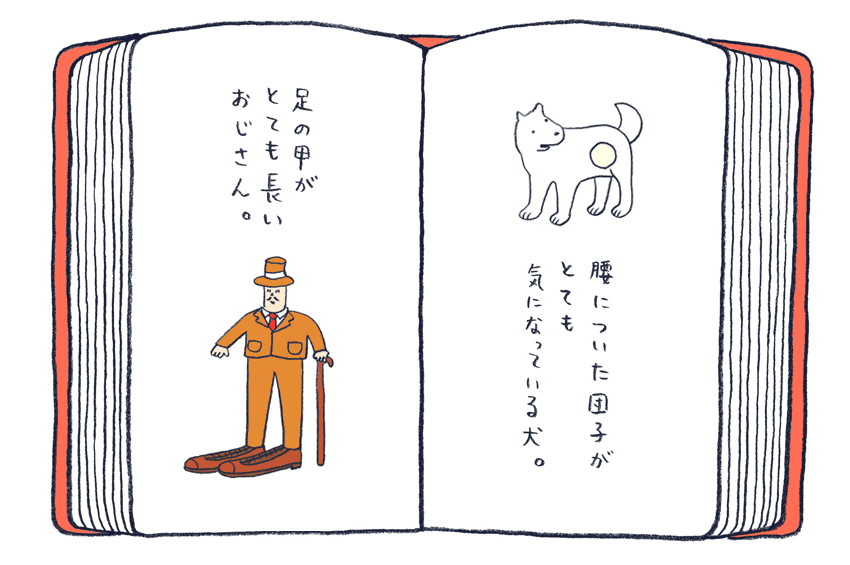 腰についた団子が
とても
気になっている犬。
足の甲が
とても長い
おじさん。